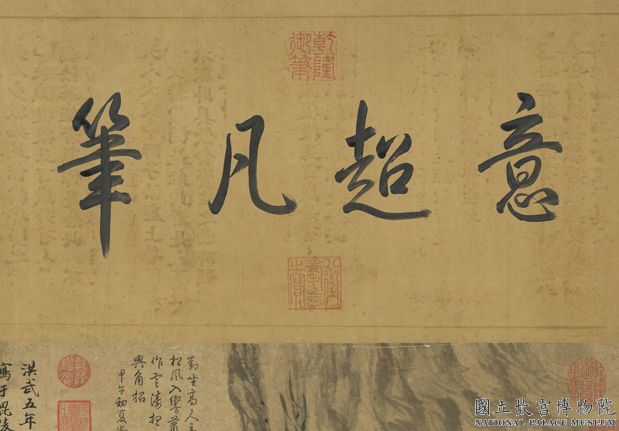 意超凡筆
乾隆御筆
對坐高人
松風入響
作雲濤想
與角招
甲午初夏
洪武五年
寫于毘陵
國立故宮博物院
NATIONAL PALACE MUSEUM